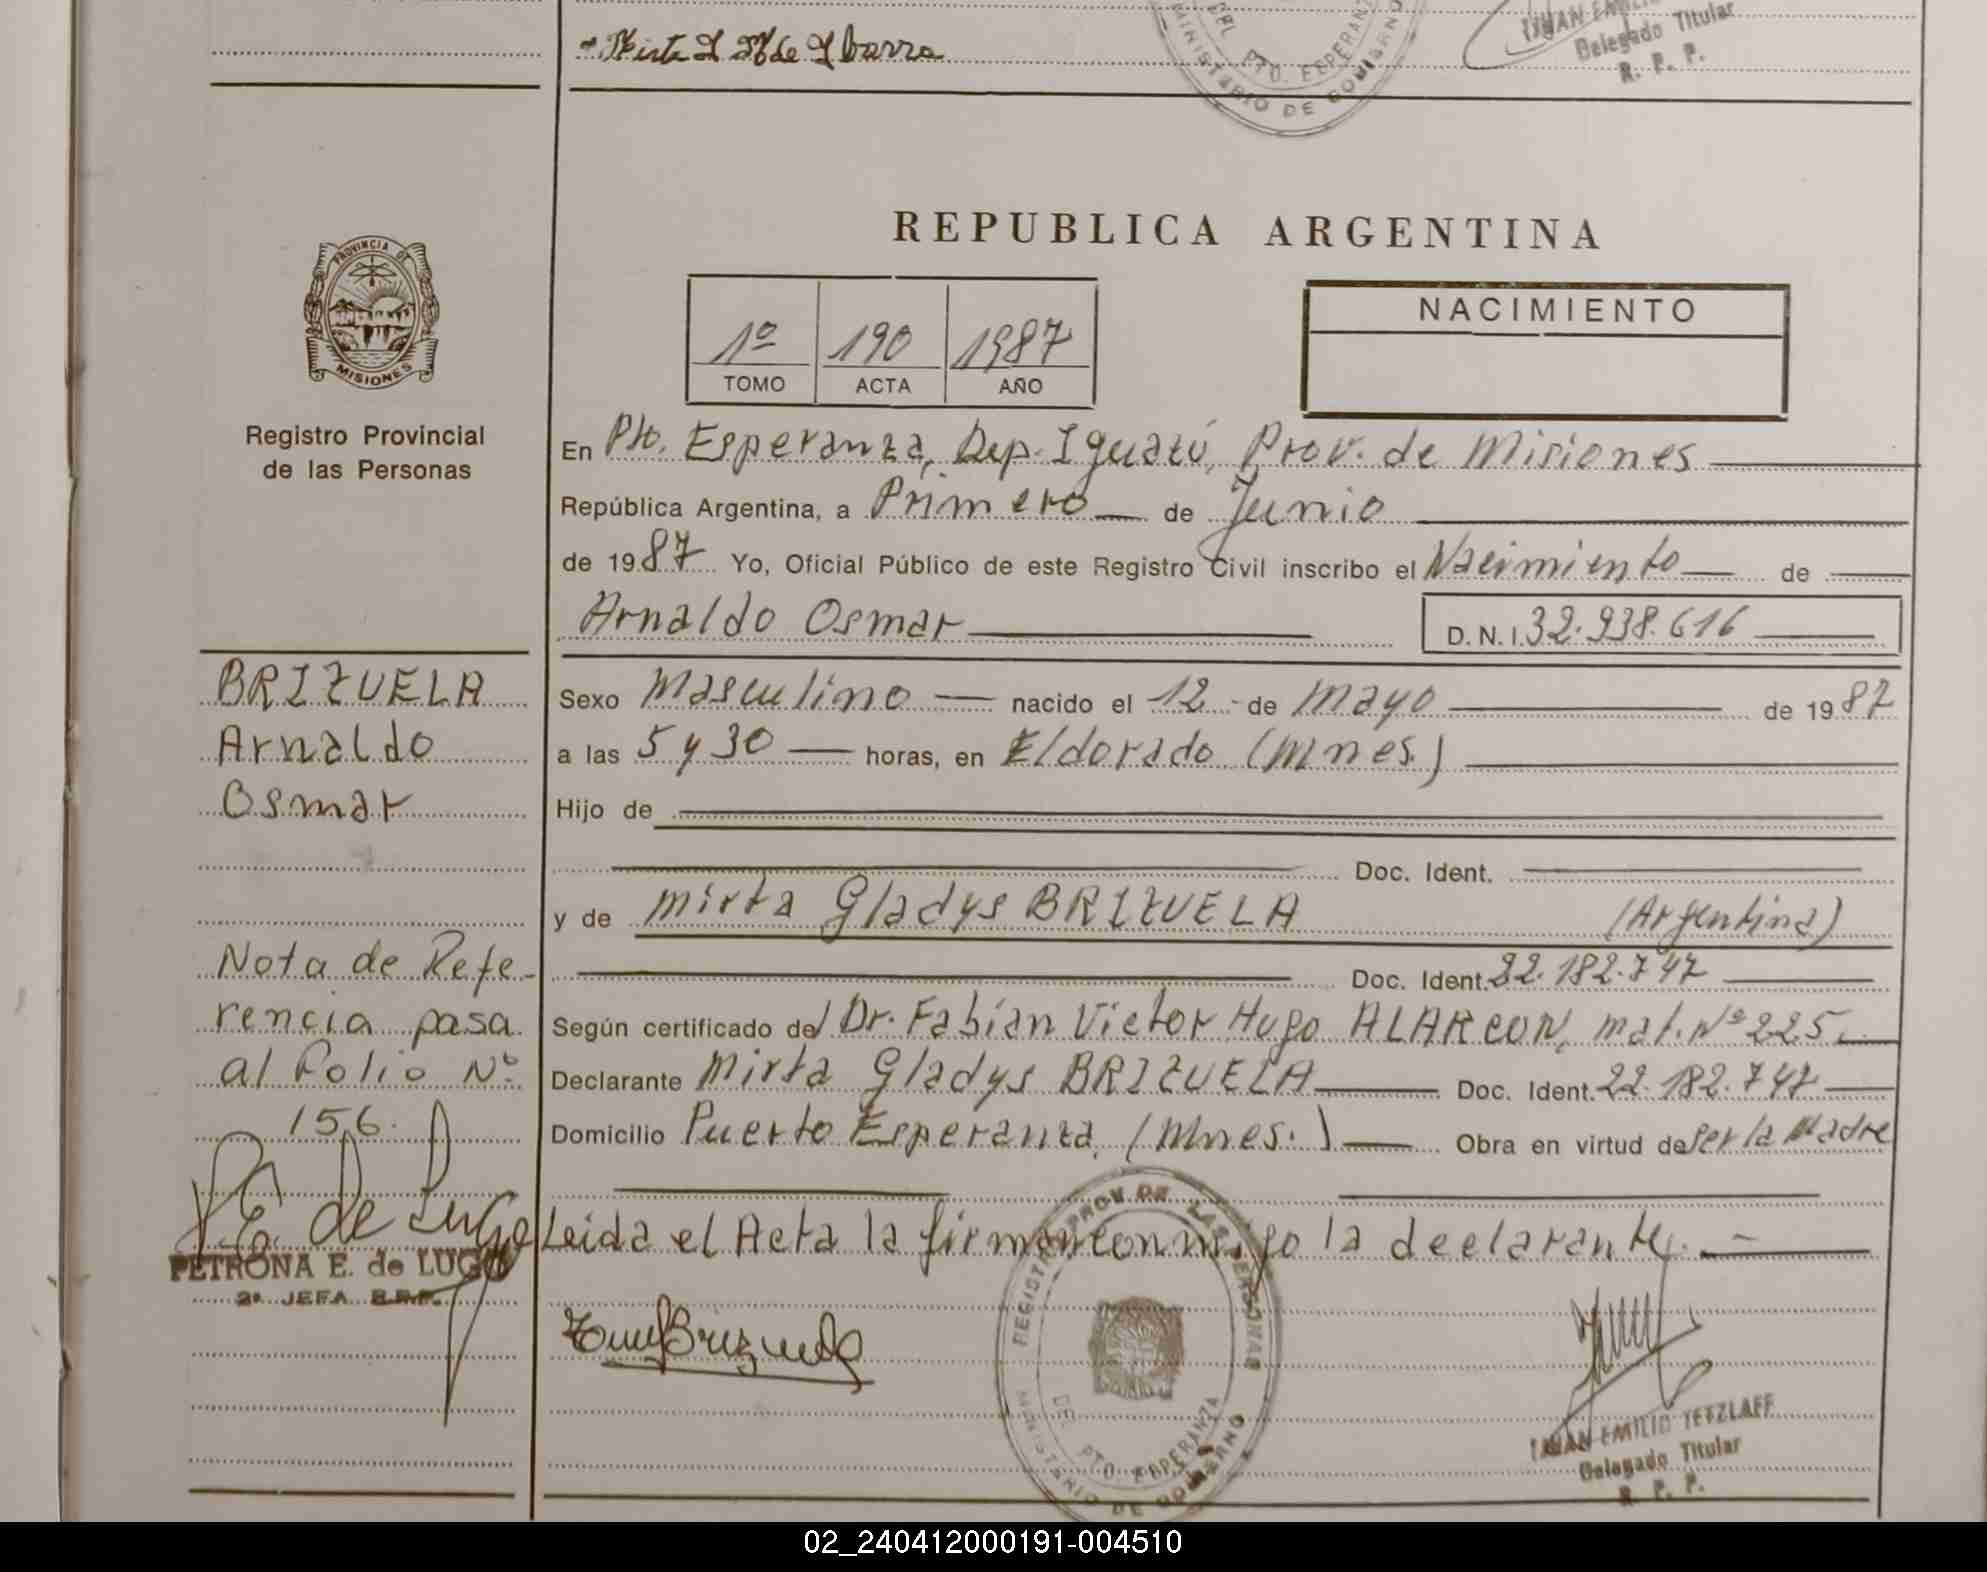 Mirta I M de Ybarra
DEL PTO. ESPERANZA
MINISTERIO DE GOBIERNO
JUAN EMILIO
Delegado Titular
R. P. P.
PROVINCIA DE
MISIONES
Registro Provincial
de las Personas
REPUBLICA ARGENTINA
1º 190 1987
TOMO ACTA AÑO
NACIMIENTO
En Pto. Esperanza, Dep. Iguazú, Prov. de Misiones
República Argentina, a Primero de Junio
de 1987 Yo, Oficial Público de este Registro Civil inscribo el Nacimiento de
Arnaldo Osmar D.N.I. 32.938.616
BRIZUELA
Arnaldo
Osmar
Sexo Masculino nacido el 12 de Mayo de 1987
a las 5 y 30 horas, en Eldorado (Mnes.)
Hijo de
Doc. Ident.
y de Mirta Gladys BRIZUELA (Argentina)
Doc. Ident. 22.182.747
Según certificado del Dr. Fabián Victor Hugo ALARCON, mat. Nº 225
Declarante Mirta Gladys BRIZUELA Doc. Ident. 22.182.747
Domicilio Puerto Esperanza, (Mnes.) Obra en virtud de ser la Madre
Leida el Acta la firman conmigo la declarante.
Nota de Refe-
rencia pasa
al Folio Nº
156.
P E. de Lugo
PETRONA E. de LUGO
2ª JEFA R.P.P.
Brizuela
REGISTRO PROV. DE LAS PERSONAS
DE PTO. ESPERANZA
MINISTERIO DE GOBIERNO
JUAN EMILIO TETZLAFF
Delegado Titular
R. P. P.
02_240412000191-004510